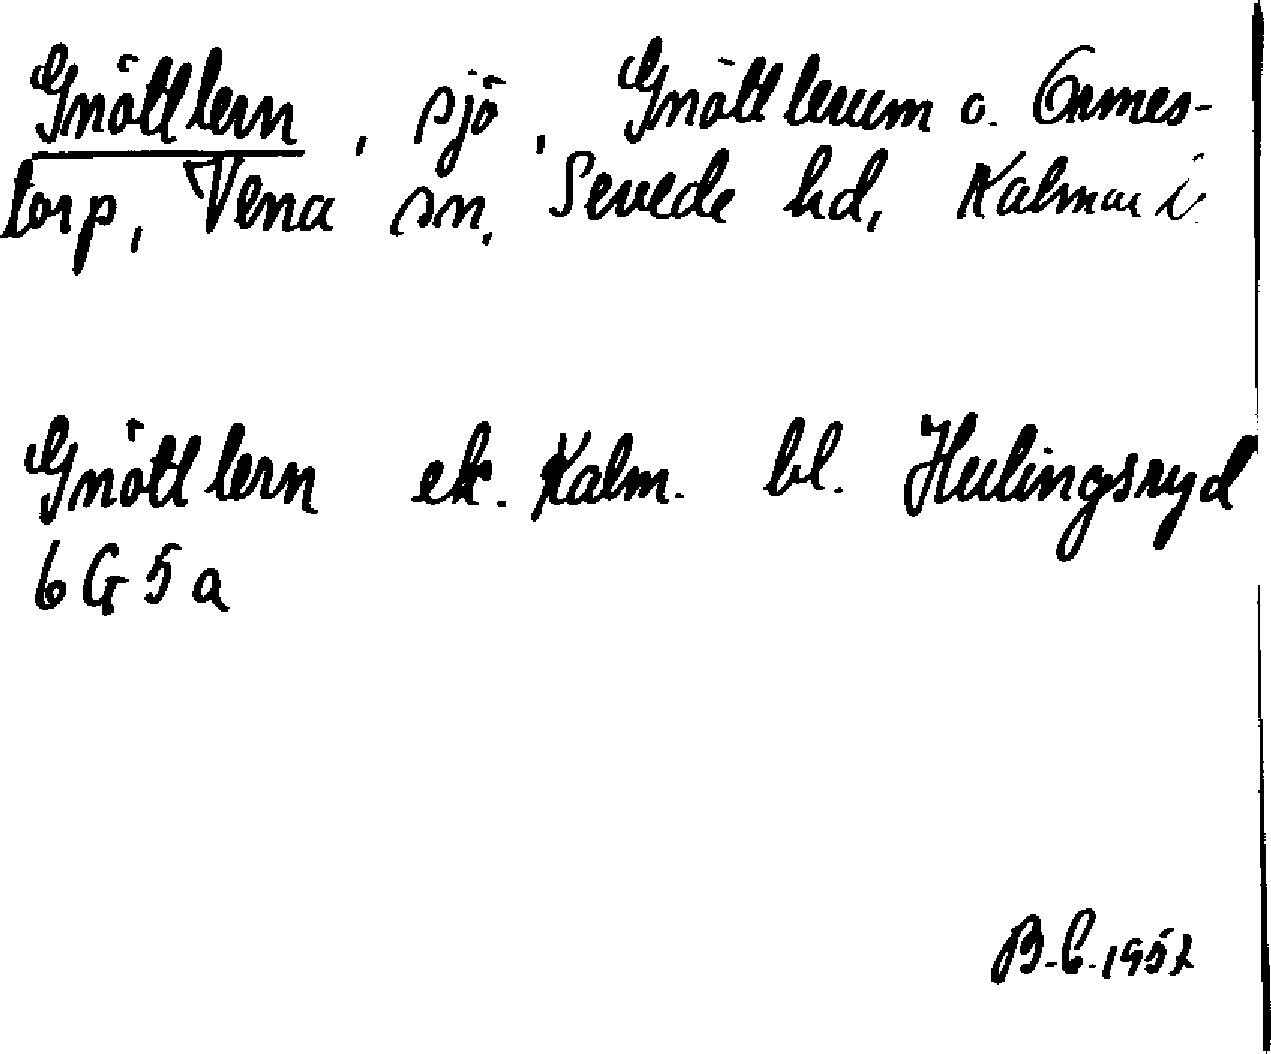 Gnöttlern, sjö, Gnöttlerum o. Ormes-
torp, Vena sn, Sevede hd, Kalmar l.
Gnöttlern ek. Kalm. bl. Hulingsryd
6 G 5 a
B.E. 1957